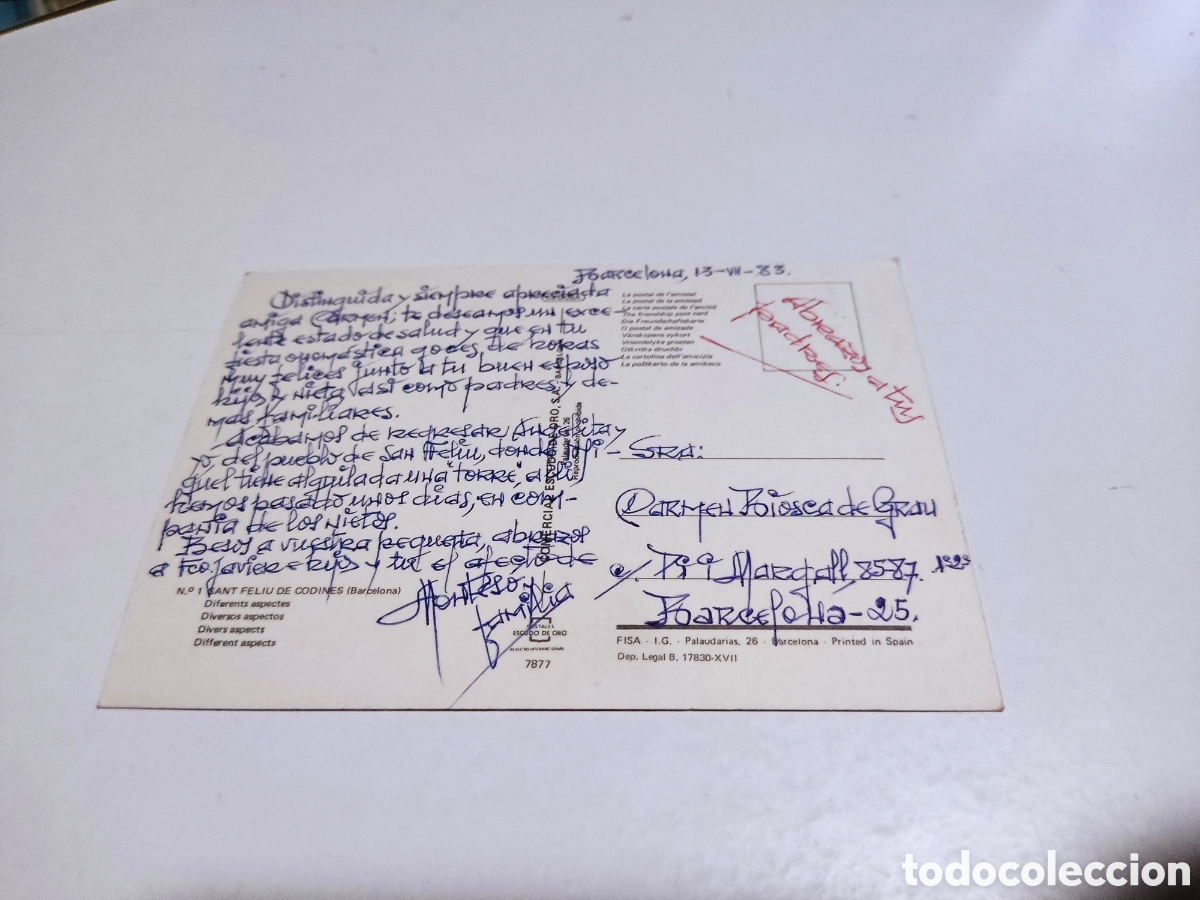 Barcelona, 13-VII-83.
Distinguida y siempre apreciada
amiga Carmen; te deseamos un exce-
lente estado de salud y que en tu
fiesta onomástica goces de horas
muy felices junto a tu buen esposo
hijo y nieta, así como padres y de-
mas familiares.
Acabamos de regresar Angelita y
yo, del pueblo de San Feliu, donde Mi-
quel tiene alquilada una "torre", allí
hemos pasado unos días, en com-
pañia de los nietos.
Besos a vuestra pequeña, abrazos
a Fco. Javier e hijo y tu el afecto de
Monteso y
familia
Nº 1 SANT FELIU DE CODINES (Barcelona)
Diferents aspectes
Diversos aspectos
Divers aspects
Different aspects
COMERCIAL ESCUDO DE ORO, S.A. - BARCELONA
Palaudarias, 26
Reproducción prohibida
POSTALES
ESCUDO DE ORO
7877
La postal de l'amistat
La postal de la amistad
La carte postale de l'amitié
The friendship post card
Die Freundschaftskarte
O postal de amizade
Vänskapens vykort
Vriendelyke groeten
Otkritka druchbi
La cartolina dell'amicizia
La poŝtkarto de la amikeco
Abrazos a tus
padres.
Sra:
Carmen Biosca de Grau
c/. Pi i Margall, 85-87. 1º2ª
Barcelona-25.
FISA - I.G. - Palaudarias, 26 - Barcelona - Printed in Spain
Dep. Legal B. 17830-XVII
todocoleccion